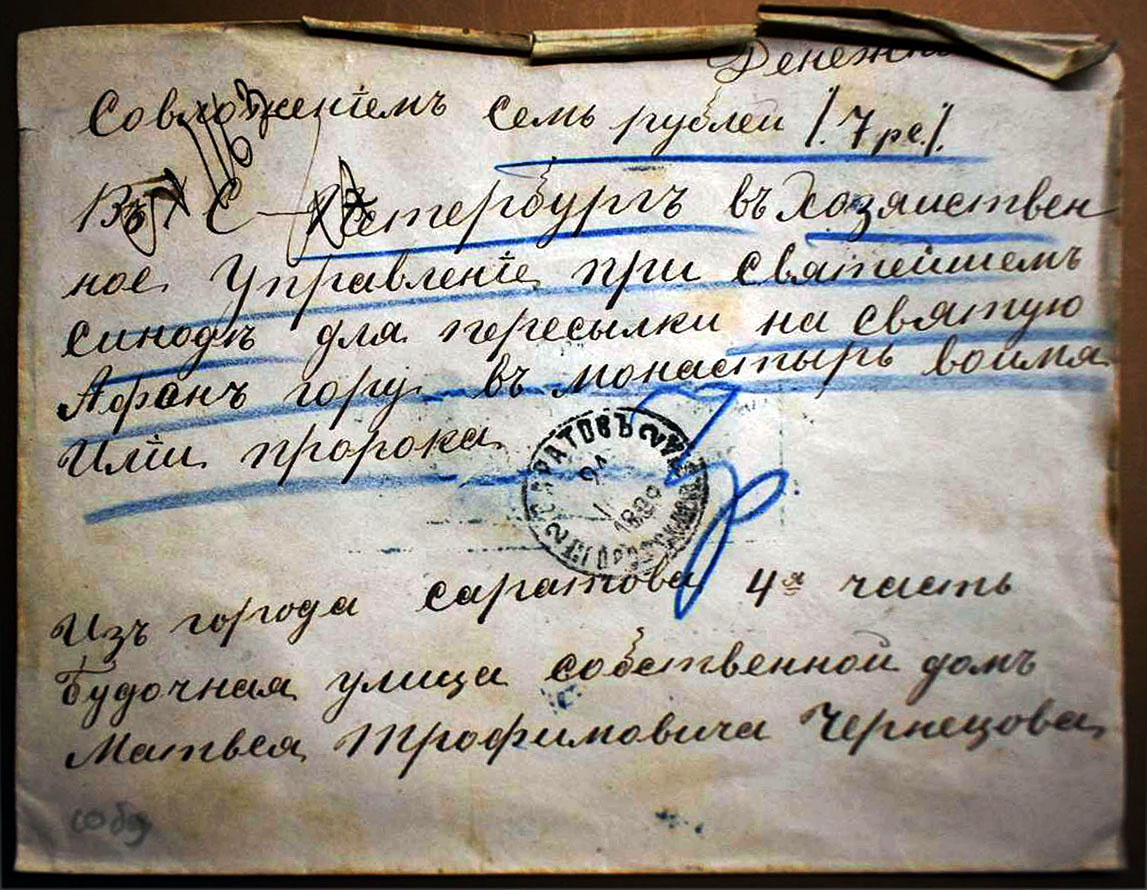 Денежн
Совложенiемъ семь рублей /.7 рс./.
Въ С-Петербургъ въ Хозяиствен
ное Управленiе при святейшемъ
синодъ для пересылки на святую
Афанъ гору въ монастырь воимя
Илiи пророка
САРАТОВЪ
Изъ города саратова 4я часть
Будочная улица собственной домъ
Матвея Трофимовича Чернецова